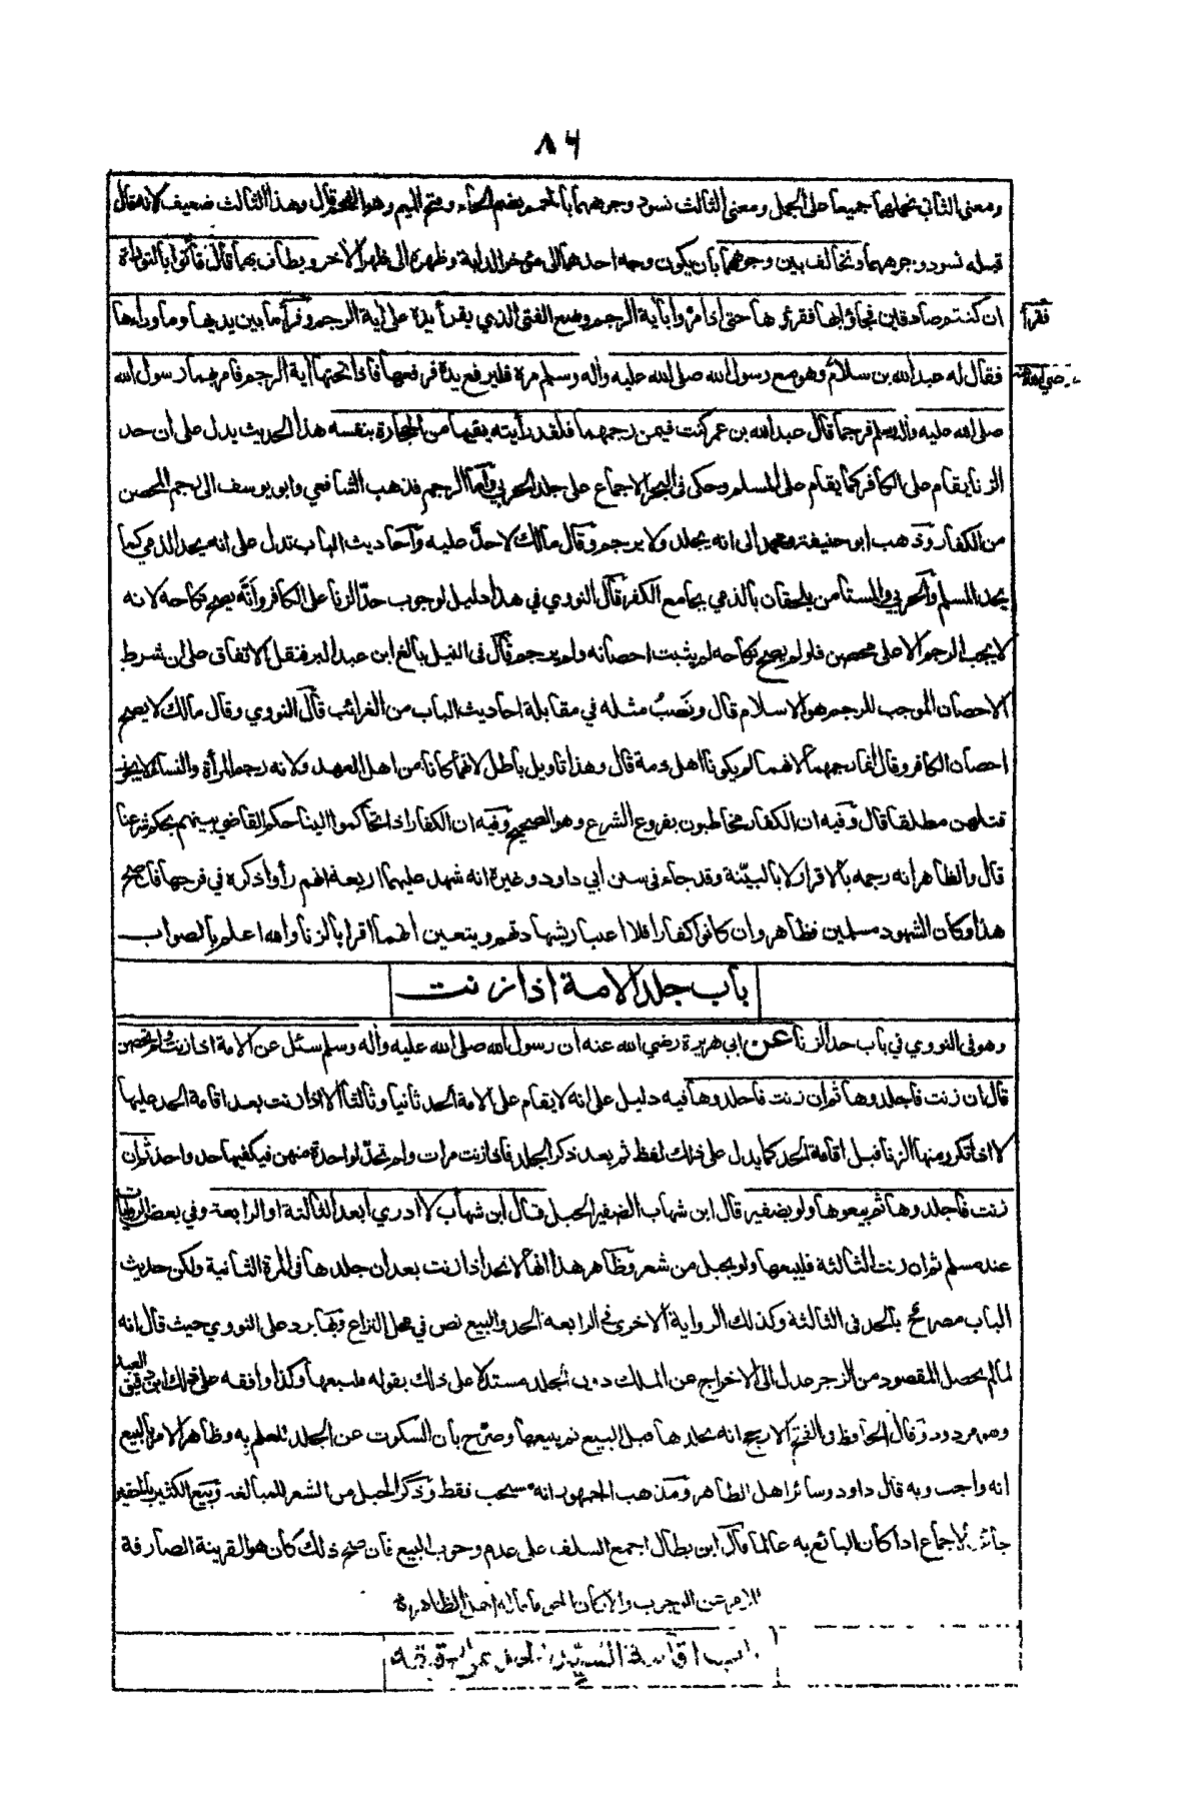 ٨٦
ومعنى الثاني نحملهما جميعا على الجمل ومعنى الثالث نسود وجوههما بالحمم بضم الحاء وفتح الميم وهو الفحم قال وهذا الثالث ضعيف لانه قال
قبله نسود وجوههما ونخالف بين وجوههما بان يكون وجه احدهما الى مؤخر الدابة وظهره الى ظهر الآخر ويطاف بهما قال فأتوا بالتوراة
ان كنتم صادقين فجاؤا بها فقرؤها حتى اذا مروا بآية الرجم وضع الفتى الذي يقرأ يده على آية الرجم وقرأ ما بين يديها وما وراءها
فقرأ
فقال له عبد الله بن سلام وهو مع رسول الله صلى الله عليه وآله وسلم مره فليرفع يده فرفعها فاذا تحتها آية الرجم فامر بهما رسول الله
صلى الله عليه وآله وسلم فرجما قال عبد الله بن عمر كنت فيمن رجمهما فلقد رأيته يقيها من الحجارة بنفسه هذا الحديث يدل على ان حد
الزنا يقام على الكافر كما يقام على المسلم وحكى فى البحر الاجماع على جلد الحربي وأما الرجم فذهب الشافعي وابو يوسف الى يرجم المحصن
من الكفار وذهب ابو حنيفة ومحمد الى انه يجلد ولا يرجم وقال مالك لا حدّ عليه وأحاديث الباب تدل على انه يحد الذمي كما
يحد المسلم والحربي والمستأمن يلحقان بالذمي بجامع الكفر قال النووي في هذا دليل لوجوب حدّ الزنا على الكافر وأنّه يصح نكاحه لانه
لا يجب الرجم الا على محصن فلو لم يصح نكاحه لم يثبت احصانه ولم يرجم وقال فى النيل بالغ ابن عبد البر فنقل الاتفاق على ان شرط
الاحصان الموجب للرجم هو الاسلام قال ونَصَبُ مثله في مقابلة احاديث الباب من الغرائب قال النووي وقال مالك لا يصح
احصان الكافر وقال انما رجمهما لانهما لم يكونا اهل ذمة قال وهذا تاويل باطل لانهما كانا من اهل العهد ولانه رجم المرأة والنساء لا يجوز
قتلهن مطلقا قال وفيه ان الكفار مخاطبون بفروع الشرع وهو الصحيح وفيه ان الكفار اذا تحاكموا الينا حكم القاضي بينهم بحكم شرعنا
قال والظاهر انه رجمه بالاقرار لا بالبيّنة وقد جاء فى سنن أبي داود وغيره انه شهد عليهما اربعة انهم رأوا ذكره في فرجها فان صح
هذا وكان الشهود مسلمين فظاهر وان كانوا كفارا فلا اعتبار بشهادتهم ويتعين انهما اقرا بالزنا والله اعلم بالصواب
باب جلد الامة اذا زنت
وهو فى النووي في باب حد الزنا عن ابي هريرة رضي الله عنه ان رسول الله صلى الله عليه وآله وسلم سئل عن الامة اذا زنت ولم تحصن
قال ان زنت فاجلدوها ثم ان زنت فاجلدوها فيه دليل على انه لا يقام على الامة الحد ثانيا وثالثا الا اذا زنت بعد اقامة الحد عليها
لا اذا تكرر منها الزنا قبل اقامة الحد كما يدل على ذلك لفظ ثم بعد ذكر الجلد فاذا زنت مرات ولم تحدّ لواحدة منهن فيكفيها حد واحد ثم ان
زنت فاجلدوها ثم بيعوها ولو بضفير قال ابن شهاب الضفير الحبل قال ابن شهاب لا ادري ابعد الثالثة او الرابعة وفي بعض الروايات
عند مسلم ثم ان زنت الثالثة فليبعها ولو بحبل من شعر وظاهر هذا انها لا تحد اذا زنت بعد ان جلدها فى المرة الثانية ولكن حديث
الباب مصرح بالحد فى الثالثة وكذلك الرواية الاخرى في الرابعة الحد والبيع نص في محل النزاع وبها يرد على النووي حيث قال انه
لما لم يحصل المقصود من الزجر عدل الى الاخراج عن الملك دون الجلد مستدلا على ذلك بقوله فليبعها وكذا وافقه على ذلك ابن دقيق العيد
وهو مردود وقال الحافظ في الفتح الارجح انه يجلدها قبل البيع ثم يبيعها وصرّح بأن السكوت عن الجلد للعلم به وظاهر الامر بالبيع
انه واجب وبه قال داود وسائر اهل الظاهر ومذهب الجمهور انه مستحب فقط وذكر الحبل من الشعر للمبالغة وبيع الكثير بالحقير
جائز بالاجماع اذا كان البائع به عالما قال ابن بطال اجمع السلف على عدم وجوب البيع فان صح ذلك كان هو القرينة الصارفة
للامر عن الوجوب والا كان الحق ما قاله اهل الظاهر
باب اقامة السيد الحد على رقيقه